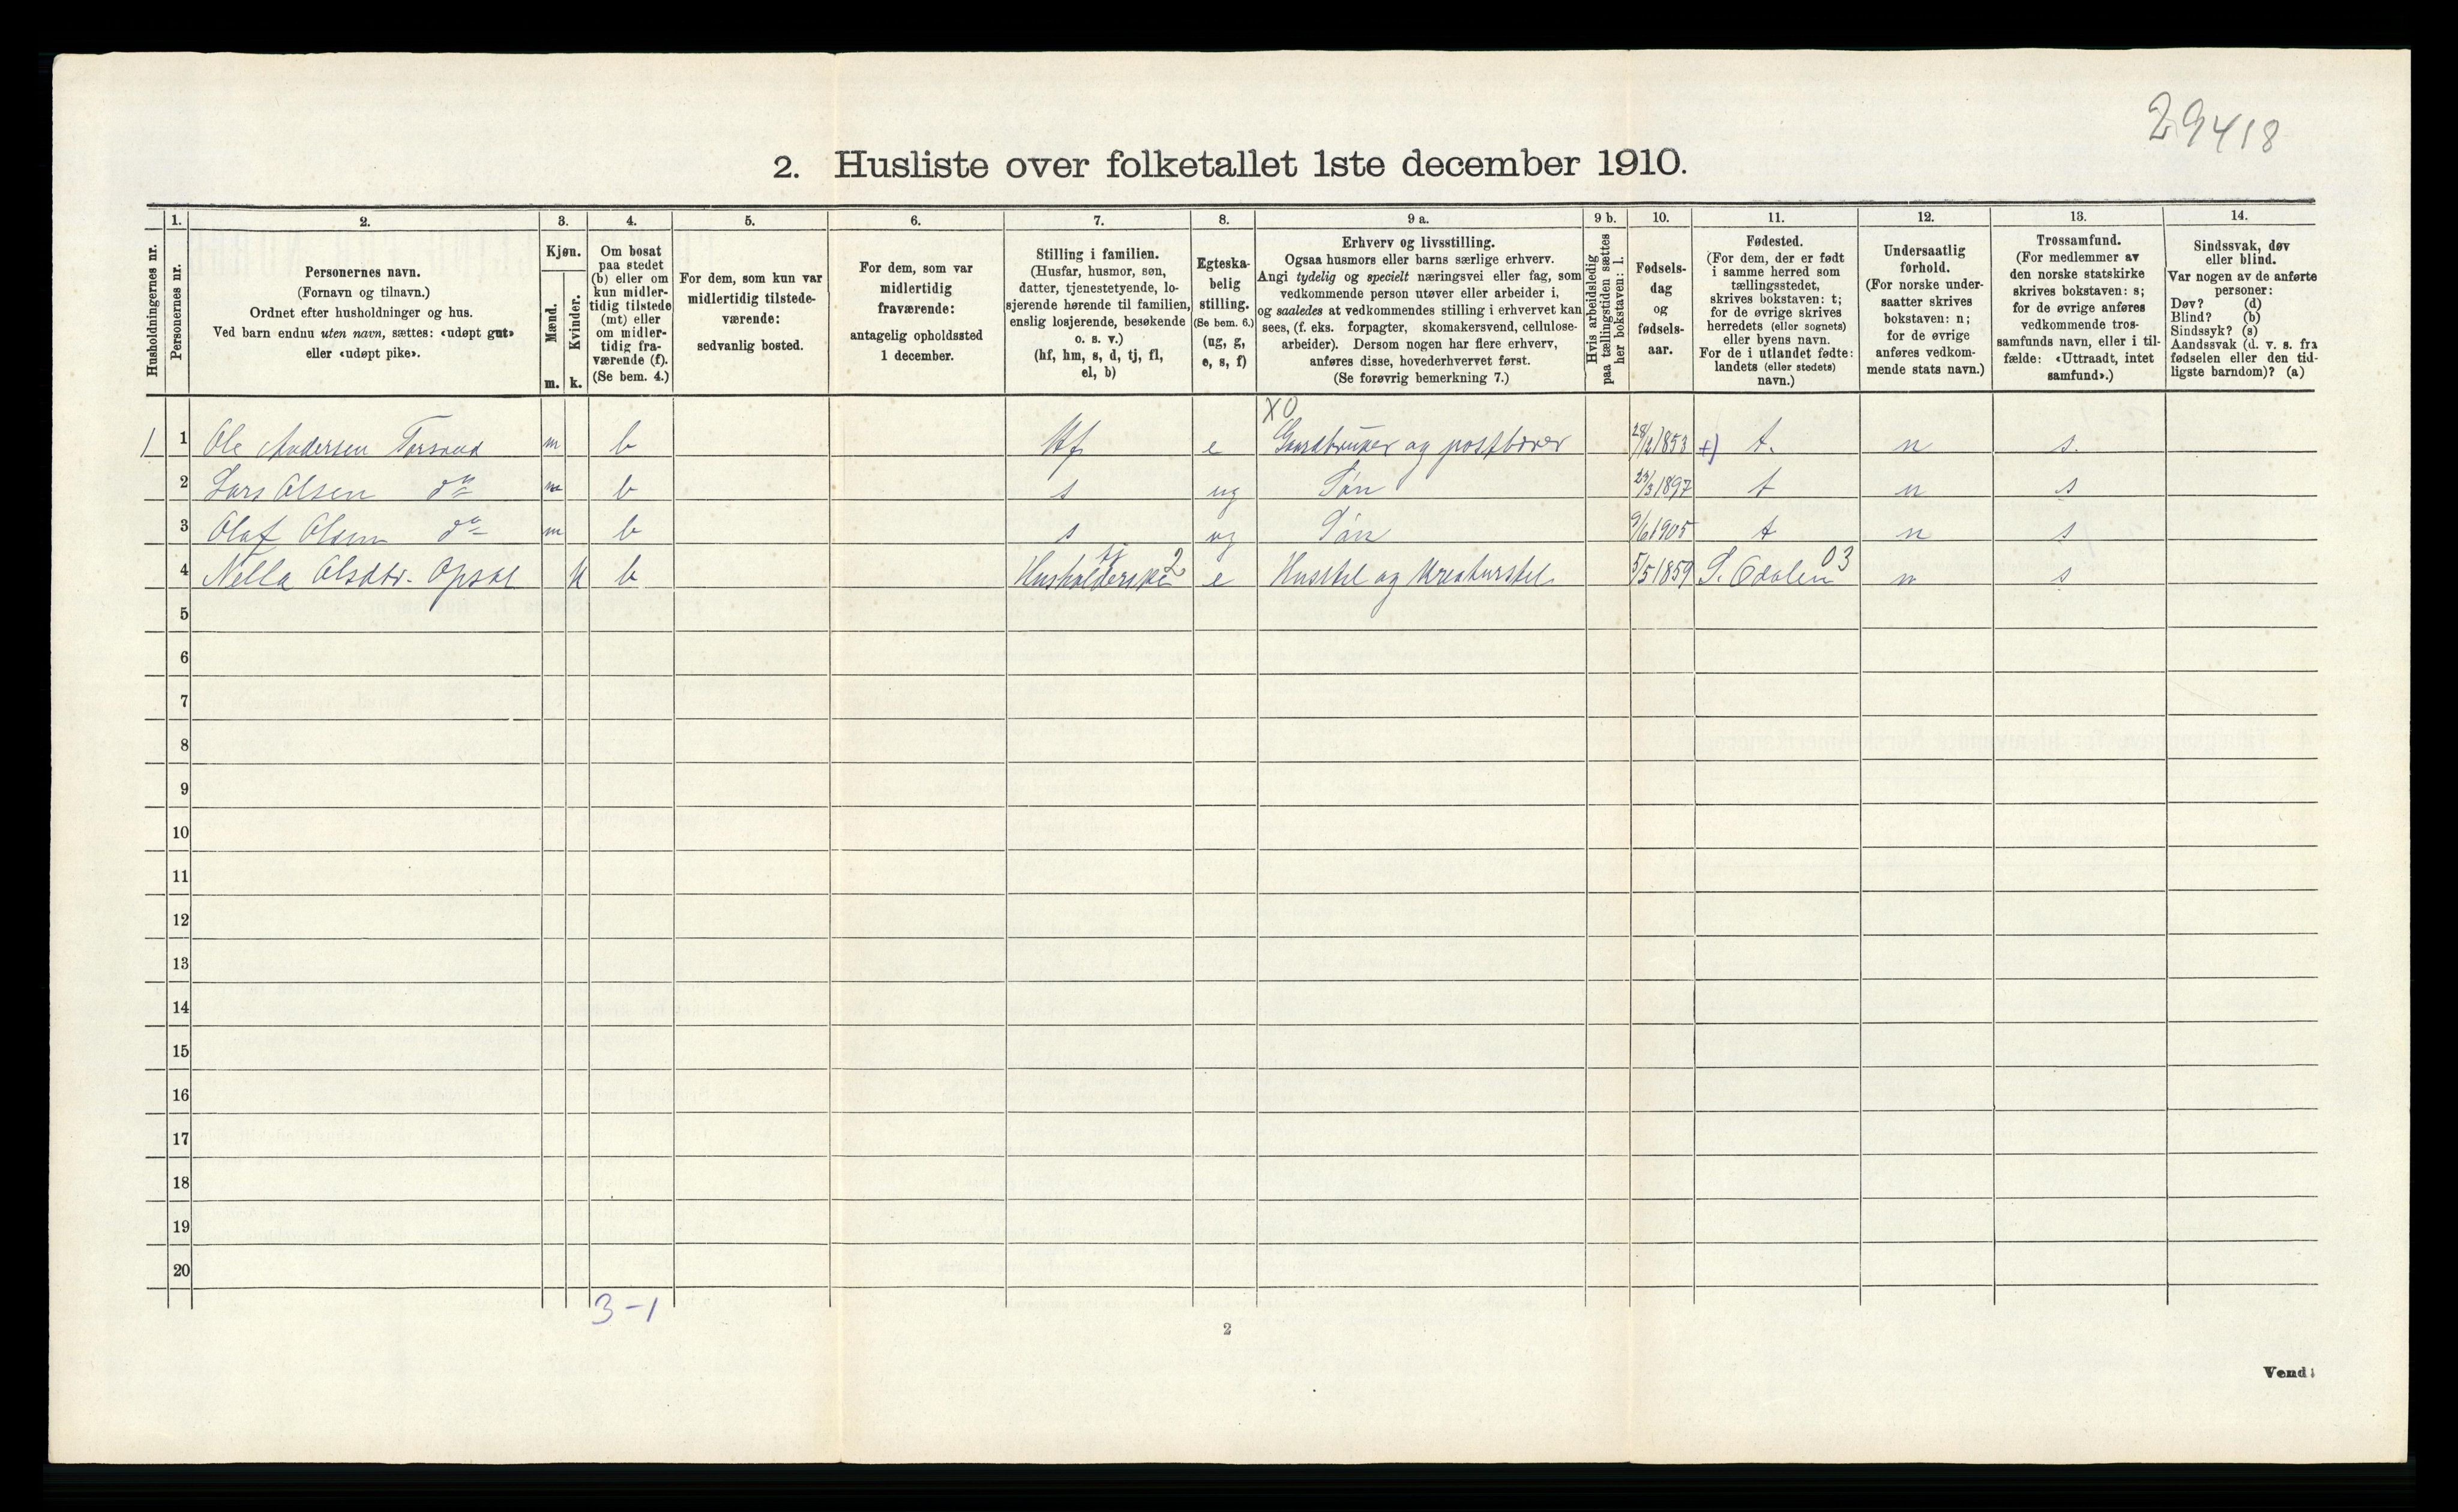 29418
2. Husliste over folketallet 1ste december 1910.
Husholdningernes nr.
1.
Personernes nr.
2.
Personernes navn.
(Fornavn og tilnavn.)
Ordnet efter husholdninger og hus.
Ved barn endnu uten navn, sættes: «udøpt gut»
eller «udøpt pike».
3.
Kjøn.
Mænd.
m.
Kvinder.
k.
4.
Om bosat
paa stedet
(b) eller om
kun midler-
tidig tilstede
(mt) eller
om midler-
tidig fra-
værende (f).
(Se bem. 4.)
5.
For dem, som kun var
midlertidig tilstede-
værende:
sedvanlig bosted.
6.
For dem, som var
midlertidig
fraværende:
antagelig opholdssted
1 december.
7.
Stilling i familien.
(Husfar, husmor, søn,
datter, tjenestetyende, lo-
sjerende hørende til familien,
enslig losjerende, besøkende
o. s. v.)
(hf, hm, s, d, tj, fl,
el, b)
8.
Egteska-
belig
stilling.
(Se bem. 6.)
(ug, g,
e, s, f)
9 a.
Erhverv og livsstilling.
Ogsaa husmors eller barns særlige erhverv.
Angi tydelig og specielt næringsvei eller fag, som
vedkommende person utøver eller arbeider i,
og saaledes at vedkommendes stilling i erhvervet kan
sees, (f. eks. forpagter, skomakersvend, cellulose-
arbeider). Dersom nogen har flere erhverv,
anføres disse, hovederhvervet først.
(Se forøvrig bemerkning 7.)
9 b.
Hvis arbeidsledig
paa tællingstiden sættes
her bokstaven: l.
10.
Fødsels-
dag
og
fødsels-
aar.
11.
Fødested.
(For dem, der er født
i samme herred som
tællingsstedet,
skrives bokstaven: t;
for de øvrige skrives
herredets (eller sognets)
eller byens navn.
For de i utlandet fødte:
landets (eller stedets)
navn.)
12.
Undersaatlig
forhold.
(For norske under-
saatter skrives
bokstaven: n;
for de øvrige
anføres vedkom-
mende stats navn.)
13.
Trossamfund.
(For medlemmer av
den norske statskirke
skrives bokstaven: s;
for de øvrige anføres
vedkommende tros-
samfunds navn, eller i til-
fælde: «Uttraadt, intet
samfund».)
14.
Sindssvak, døv
eller blind.
Var nogen av de anførte
personer:
Døv? (d)
Blind? (b)
Sindssyk? (s)
Aandssvak (d. v. s. fra
fødselen eller den tid-
ligste barndom)? (a)
X0
1 1 Ole Andersen Torsrud m b Hf e Gaardbruker og postbærer 28/12 1853 +) t. n s.
2 Lars Olsen do m b s ug Søn 23/3 1897 t n s
3 Olaf Olsen do m b s ug Søn 9/6 1905 t n s
tj 2 03
4 Nella Olsdtr. Opsal k b Husholderske e Husstel og kreaturstel 5/5 1859 S. Odalen n s
5
6
7
8
9
10
11
12
13
14
15
16
17
18
19
20
3-1
2
Vend!